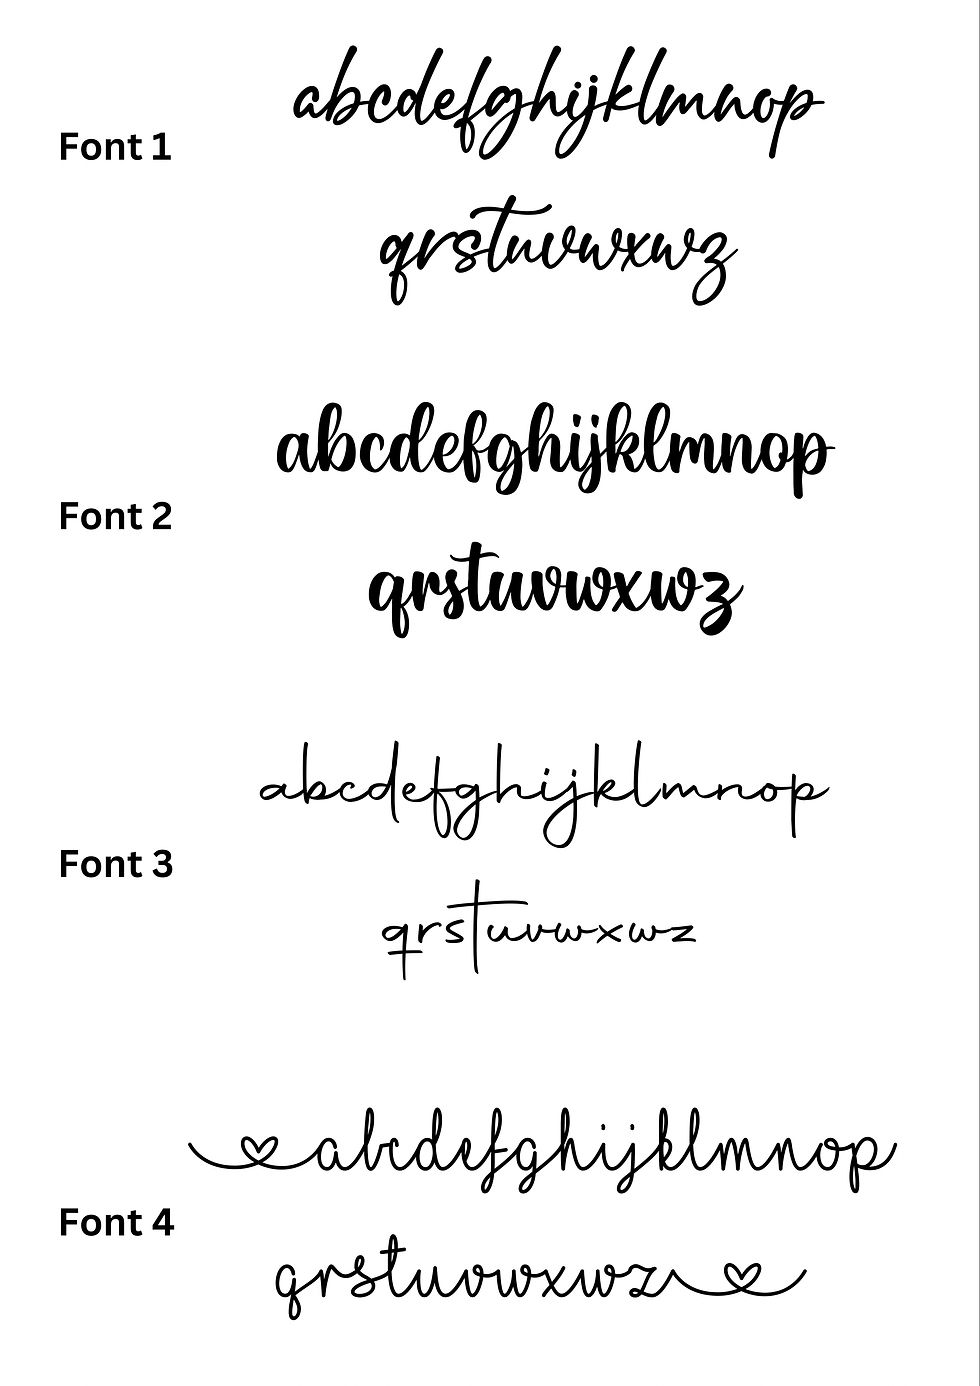 abcdefghijklmnop
Font 1
qrstuvwxwz
abcdefghijklmnop
Font 2
qrstuvwxwz
abcdefghijklmnop
Font 3
qrstuvwxwz
abcdefghijklmnop
Font 4
qrstuvwxwz